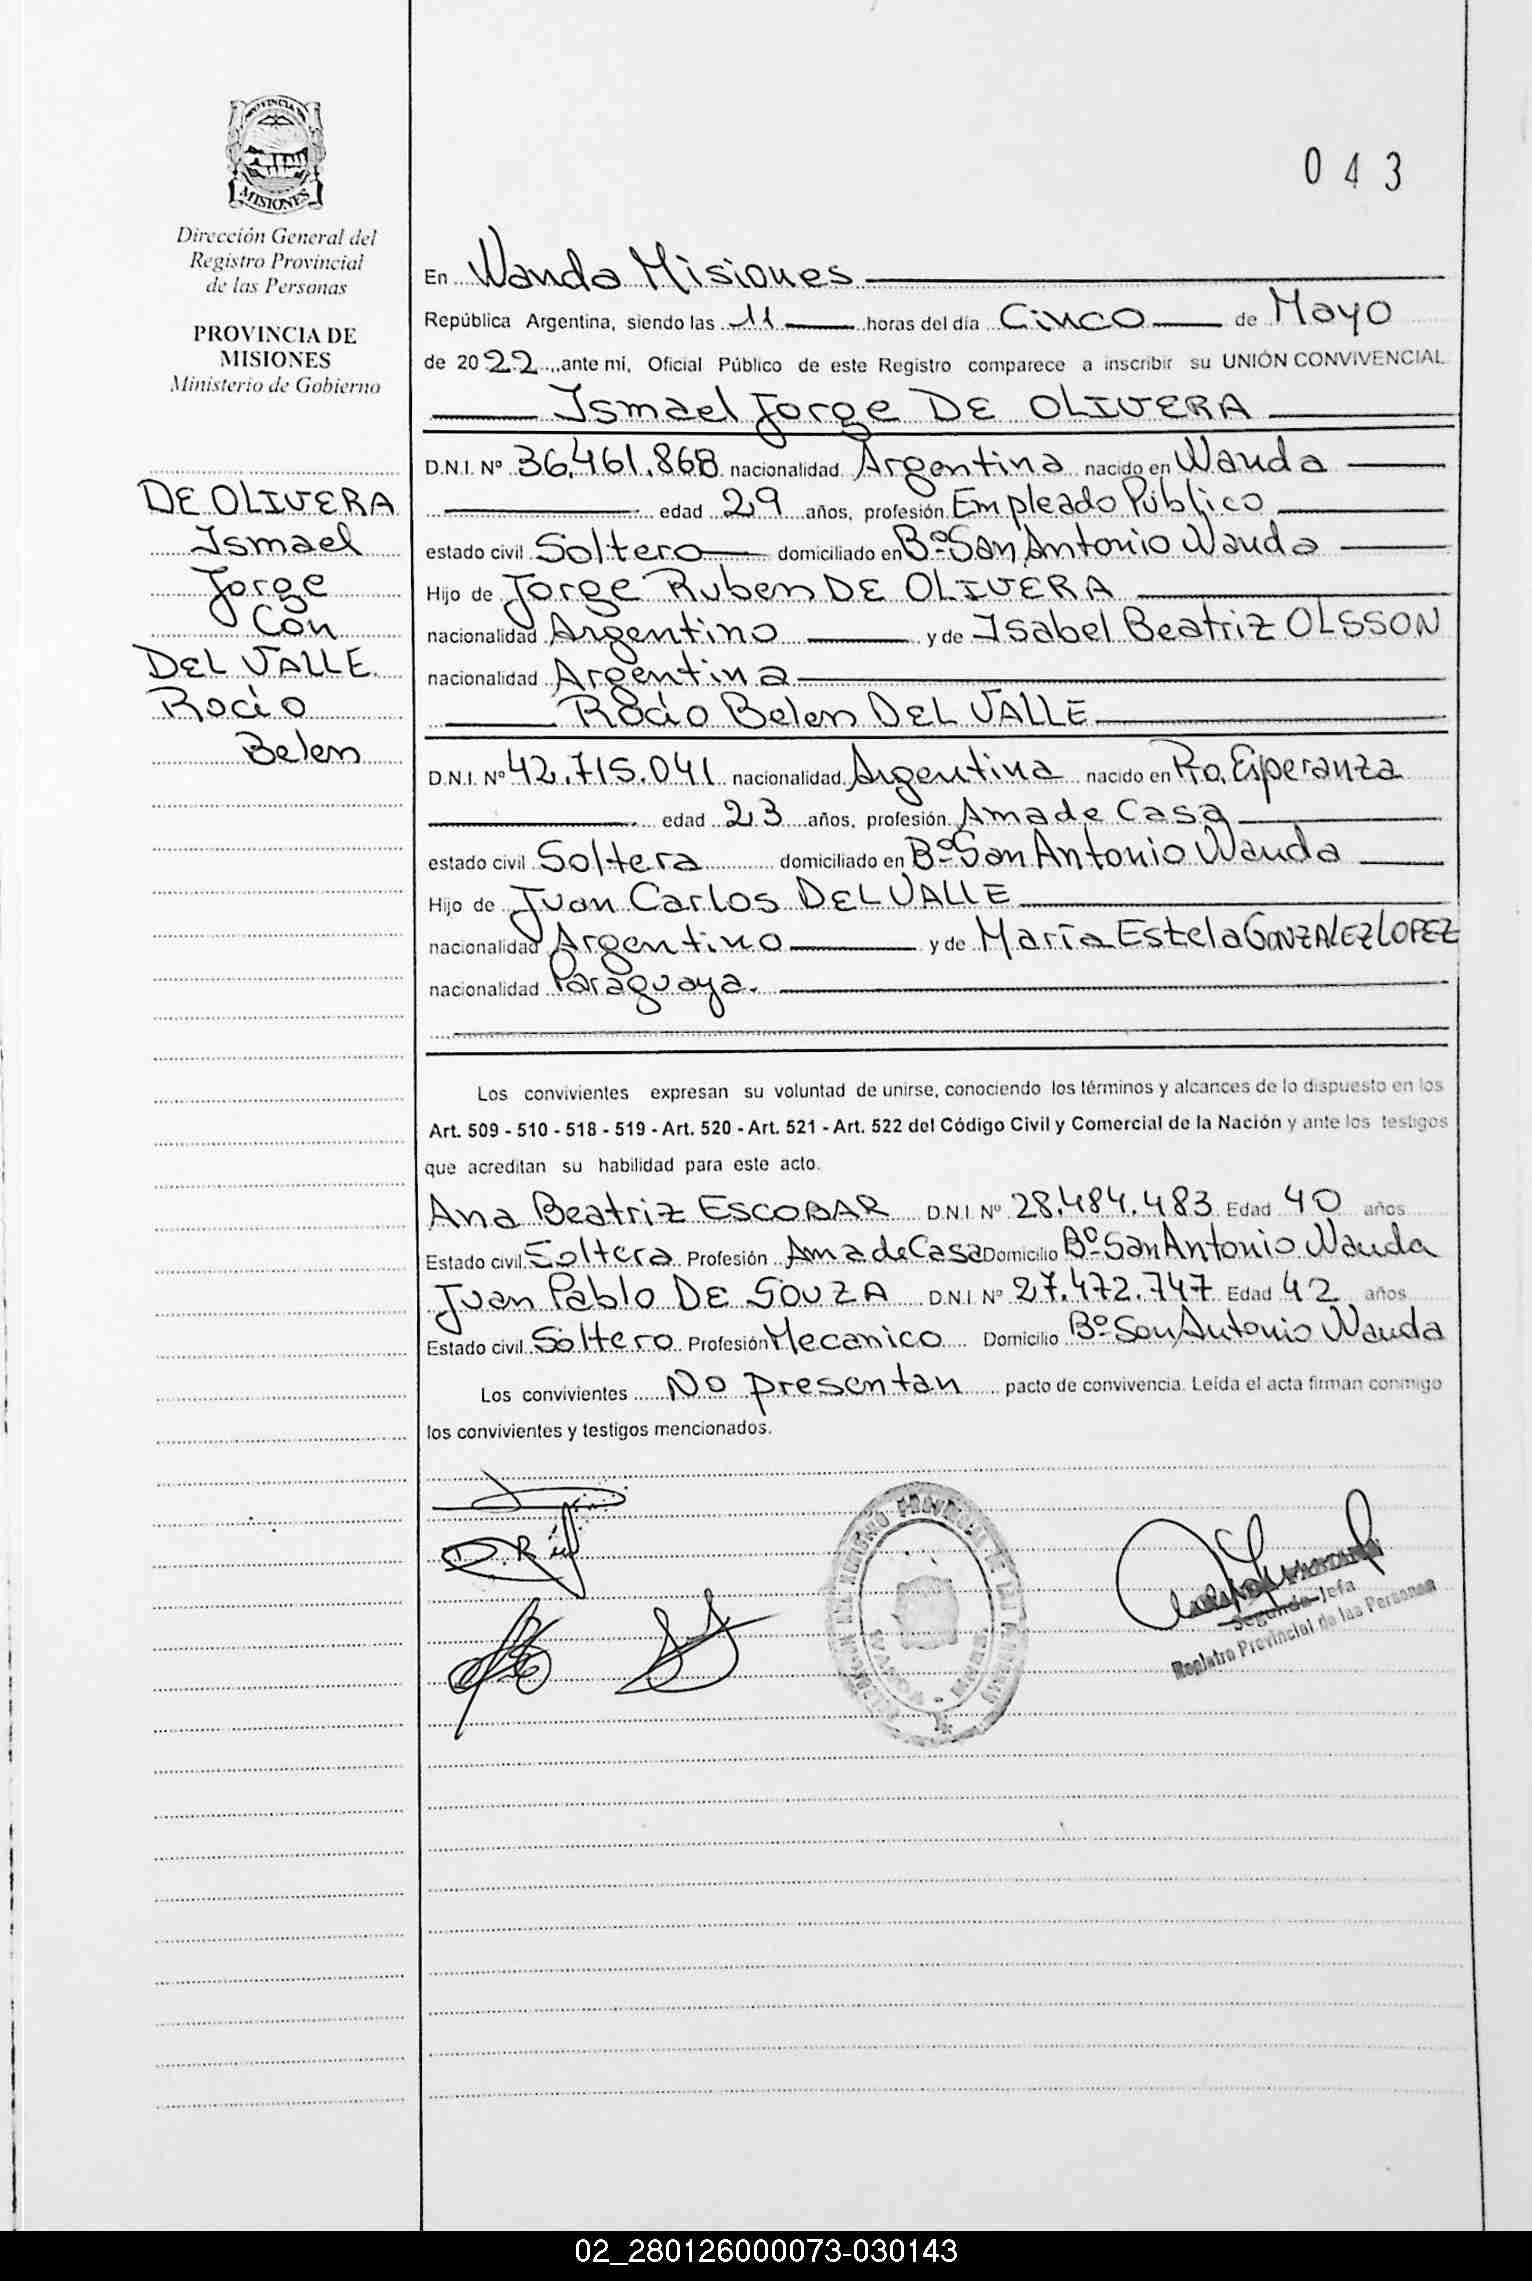 PROVINCIA DE
MISIONES
Dirección General del
Registro Provincial
de las Personas
PROVINCIA DE
MISIONES
Ministerio de Gobierno
DE OLIVERA
Ismael
Jorge
Con
DEL VALLE
Rocio
Belen
043
En Wanda Misiones
República Argentina, siendo las 11 horas del día Cinco de Mayo
de 2022 ante mí, Oficial Público de este Registro comparece a inscribir su UNIÓN CONVIVENCIAL
Ismael Jorge DE OLIVERA
D.N.I. Nº 36.461.868 nacionalidad Argentina nacido en Wanda
edad 29 años, profesión Empleado Público
estado civil Soltero domiciliado en Bº San Antonio Wanda
Hijo de Jorge Ruben DE OLIVERA
nacionalidad Argentino y de Isabel Beatriz OLSSON
nacionalidad Argentina
Rocio Belen DEL VALLE
D.N.I. Nº 42.715.041 nacionalidad Argentina nacido en Pto. Esperanza
edad 23 años, profesión Ama de Casa
estado civil Soltera domiciliado en Bº San Antonio Wanda
Hijo de Juan Carlos DEL VALLE
nacionalidad Argentino y de María Estela GONZALEZ LOPEZ
nacionalidad Paraguaya.
Los convivientes expresan su voluntad de unirse, conociendo los términos y alcances de lo dispuesto en los
Art. 509 - 510 - 518 - 519 - Art. 520 - Art. 521 - Art. 522 del Código Civil y Comercial de la Nación y ante los testigos
que acreditan su habilidad para este acto.
Ana Beatriz ESCOBAR D.N.I. Nº 28.484.483 Edad 40 años
Estado civil Soltera Profesión Ama de Casa Domicilio Bº San Antonio Wanda
Juan Pablo DE SOUZA D.N.I. Nº 27.472.747 Edad 42 años
Estado civil Soltero Profesión Mecanico Domicilio Bº San Antonio Wanda
Los convivientes No presentan pacto de convivencia. Leída el acta firman conmigo
los convivientes y testigos mencionados.
Segunda Jefa
Registro Provincial de las Personas
02_280126000073-030143